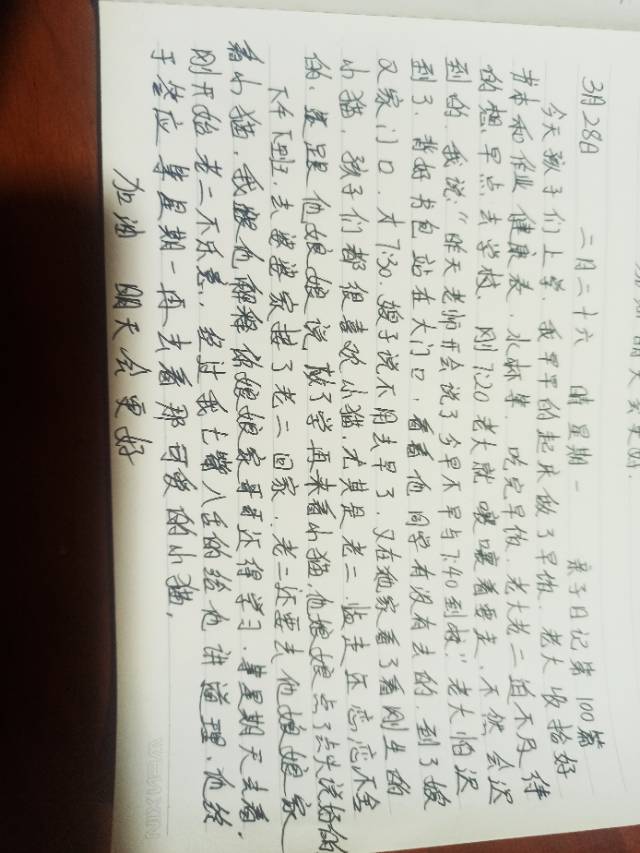 3月28日 二月二十六 晴 星期一 亲子日记第100篇
今天孩子们上学，我早早的起床做了早饭，老大收拾好
书本和作业 健康表，水杯等，吃完早饭，老大老二迫不及待
的想早点去学校，刚7:20老大就嚷嚷着要走，不然会迟
到的，我说：“昨天老师开会说了今早不早与7:40到校”老大怕迟
到了，背好书包站在大门口，看看他同学有没有去的，到了嫂
又家门口，才7:30，嫂子说不用去早了，又在她家看了看刚生的
小猫，孩子们都很喜欢小猫，尤其是老二，临走还恋恋不舍
的，还是他娘娘说，放了学再来看小猫，他娘娘点了点头说好的
下午下班，去婆婆家接了老二回家，老二还要去他娘娘家
看小猫，我跟他解释你娘娘家哥哥还得学习，等星期天去看，
刚开始老二不乐意，经过我七嘴八舌的给他讲道理，他终
于答应 等星期一再去看那可爱的小猫，
加油 明天会更好
WANXIN